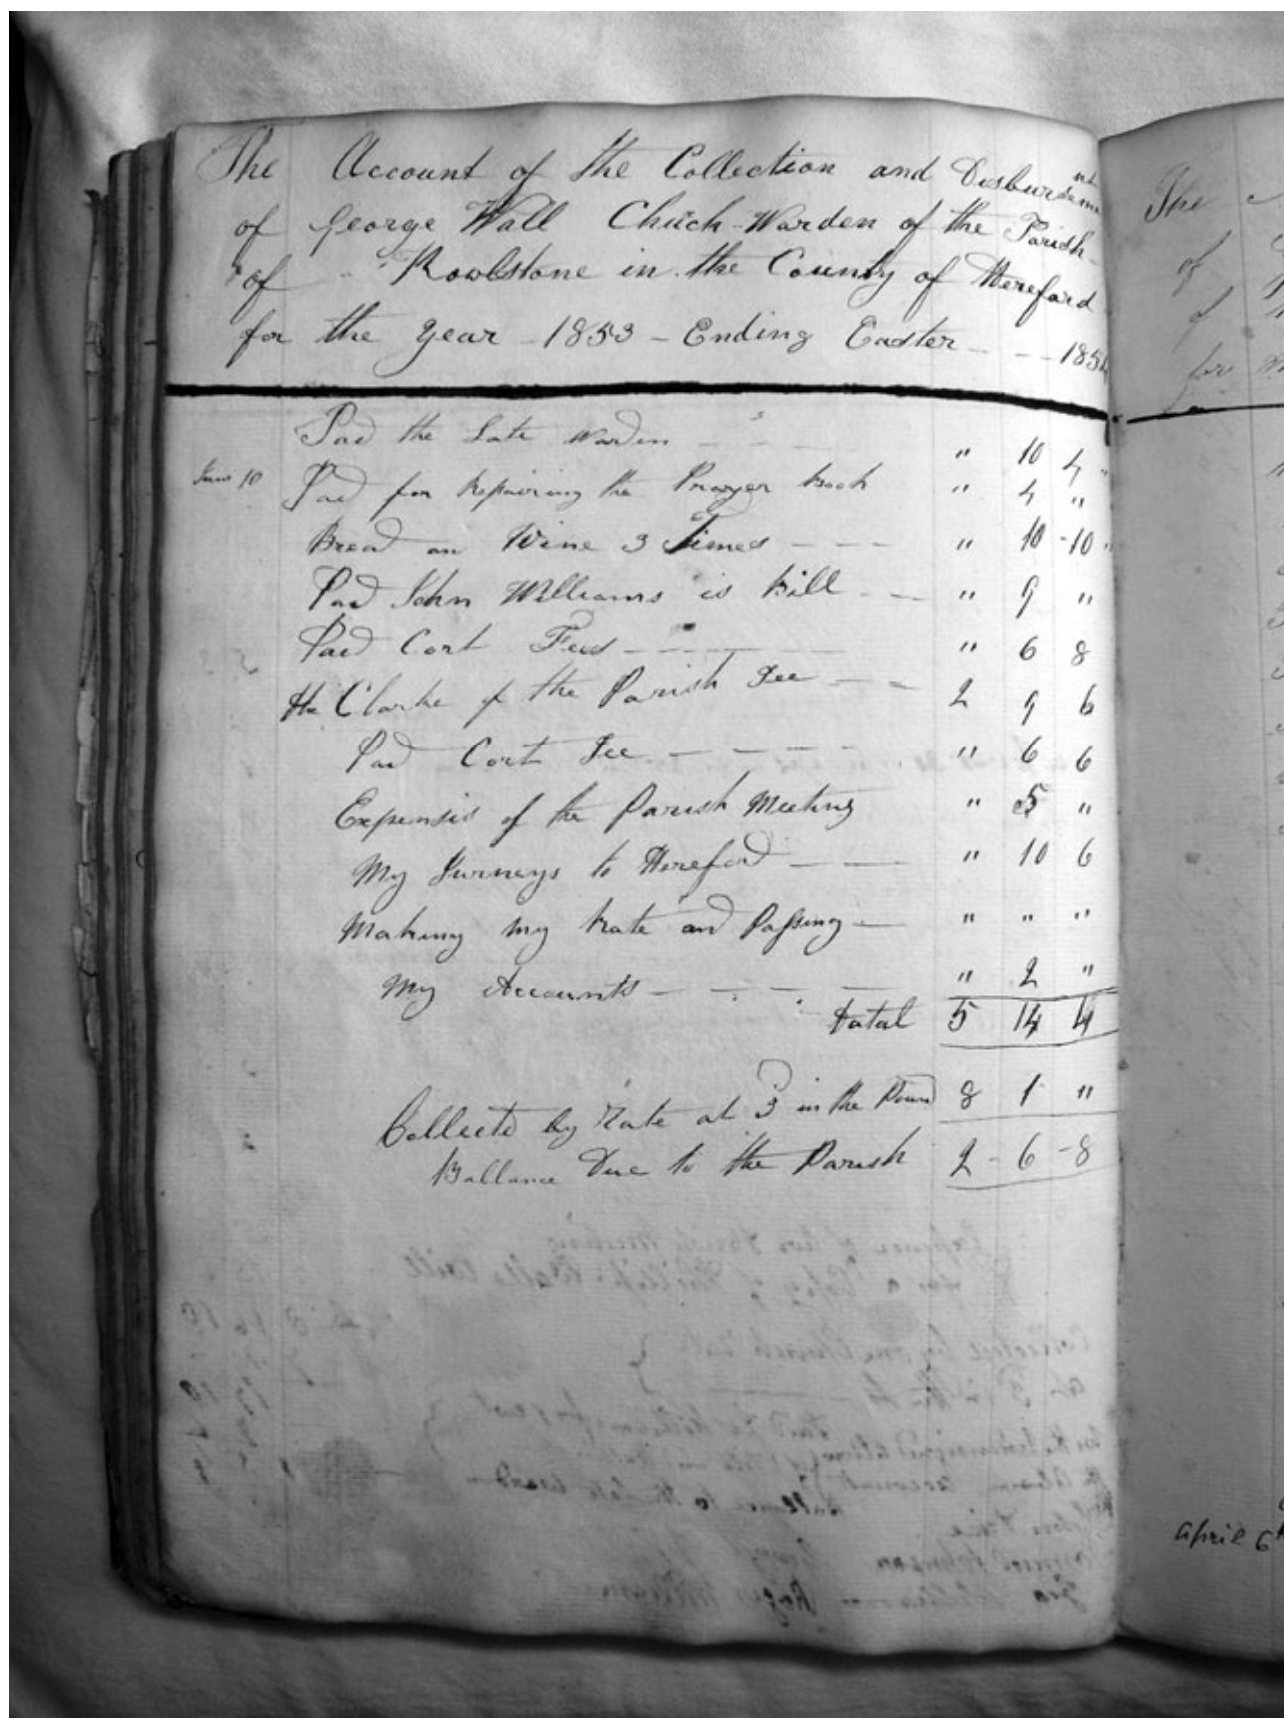 The Account of the Collection and Disbursement
of George Wall Chuch-Warden of the Parish
of Rowlstone in the County of Hereford
for the year - 1853 - Ending Easter - - - 1854
Pad the Late Warden - - - " 10 4
June 10 Pad for Repairing the Prayer book " 4 "
Bread an Wine 3 Times - - - " 10 - 10
Pad John Williams is bill - - " 9 "
Paid Cort Fees - - - - " 6 8
the Clarke of the Parish Fee - - 2 9 6
Pad Cort Fee - - - - " 6 6
Expensis of the Parish Meeting " 5 "
My Jurneys to Hereford - - " 10 6
Making my Rate and Passing - " " "
My Accounts - - - - " 2 "
total 5 14 4
Collected by Rate at 3 in the Pound 8 1 "
Ballance Due to the Parish 2 - 6 - 8
The
of
of
for
April 6